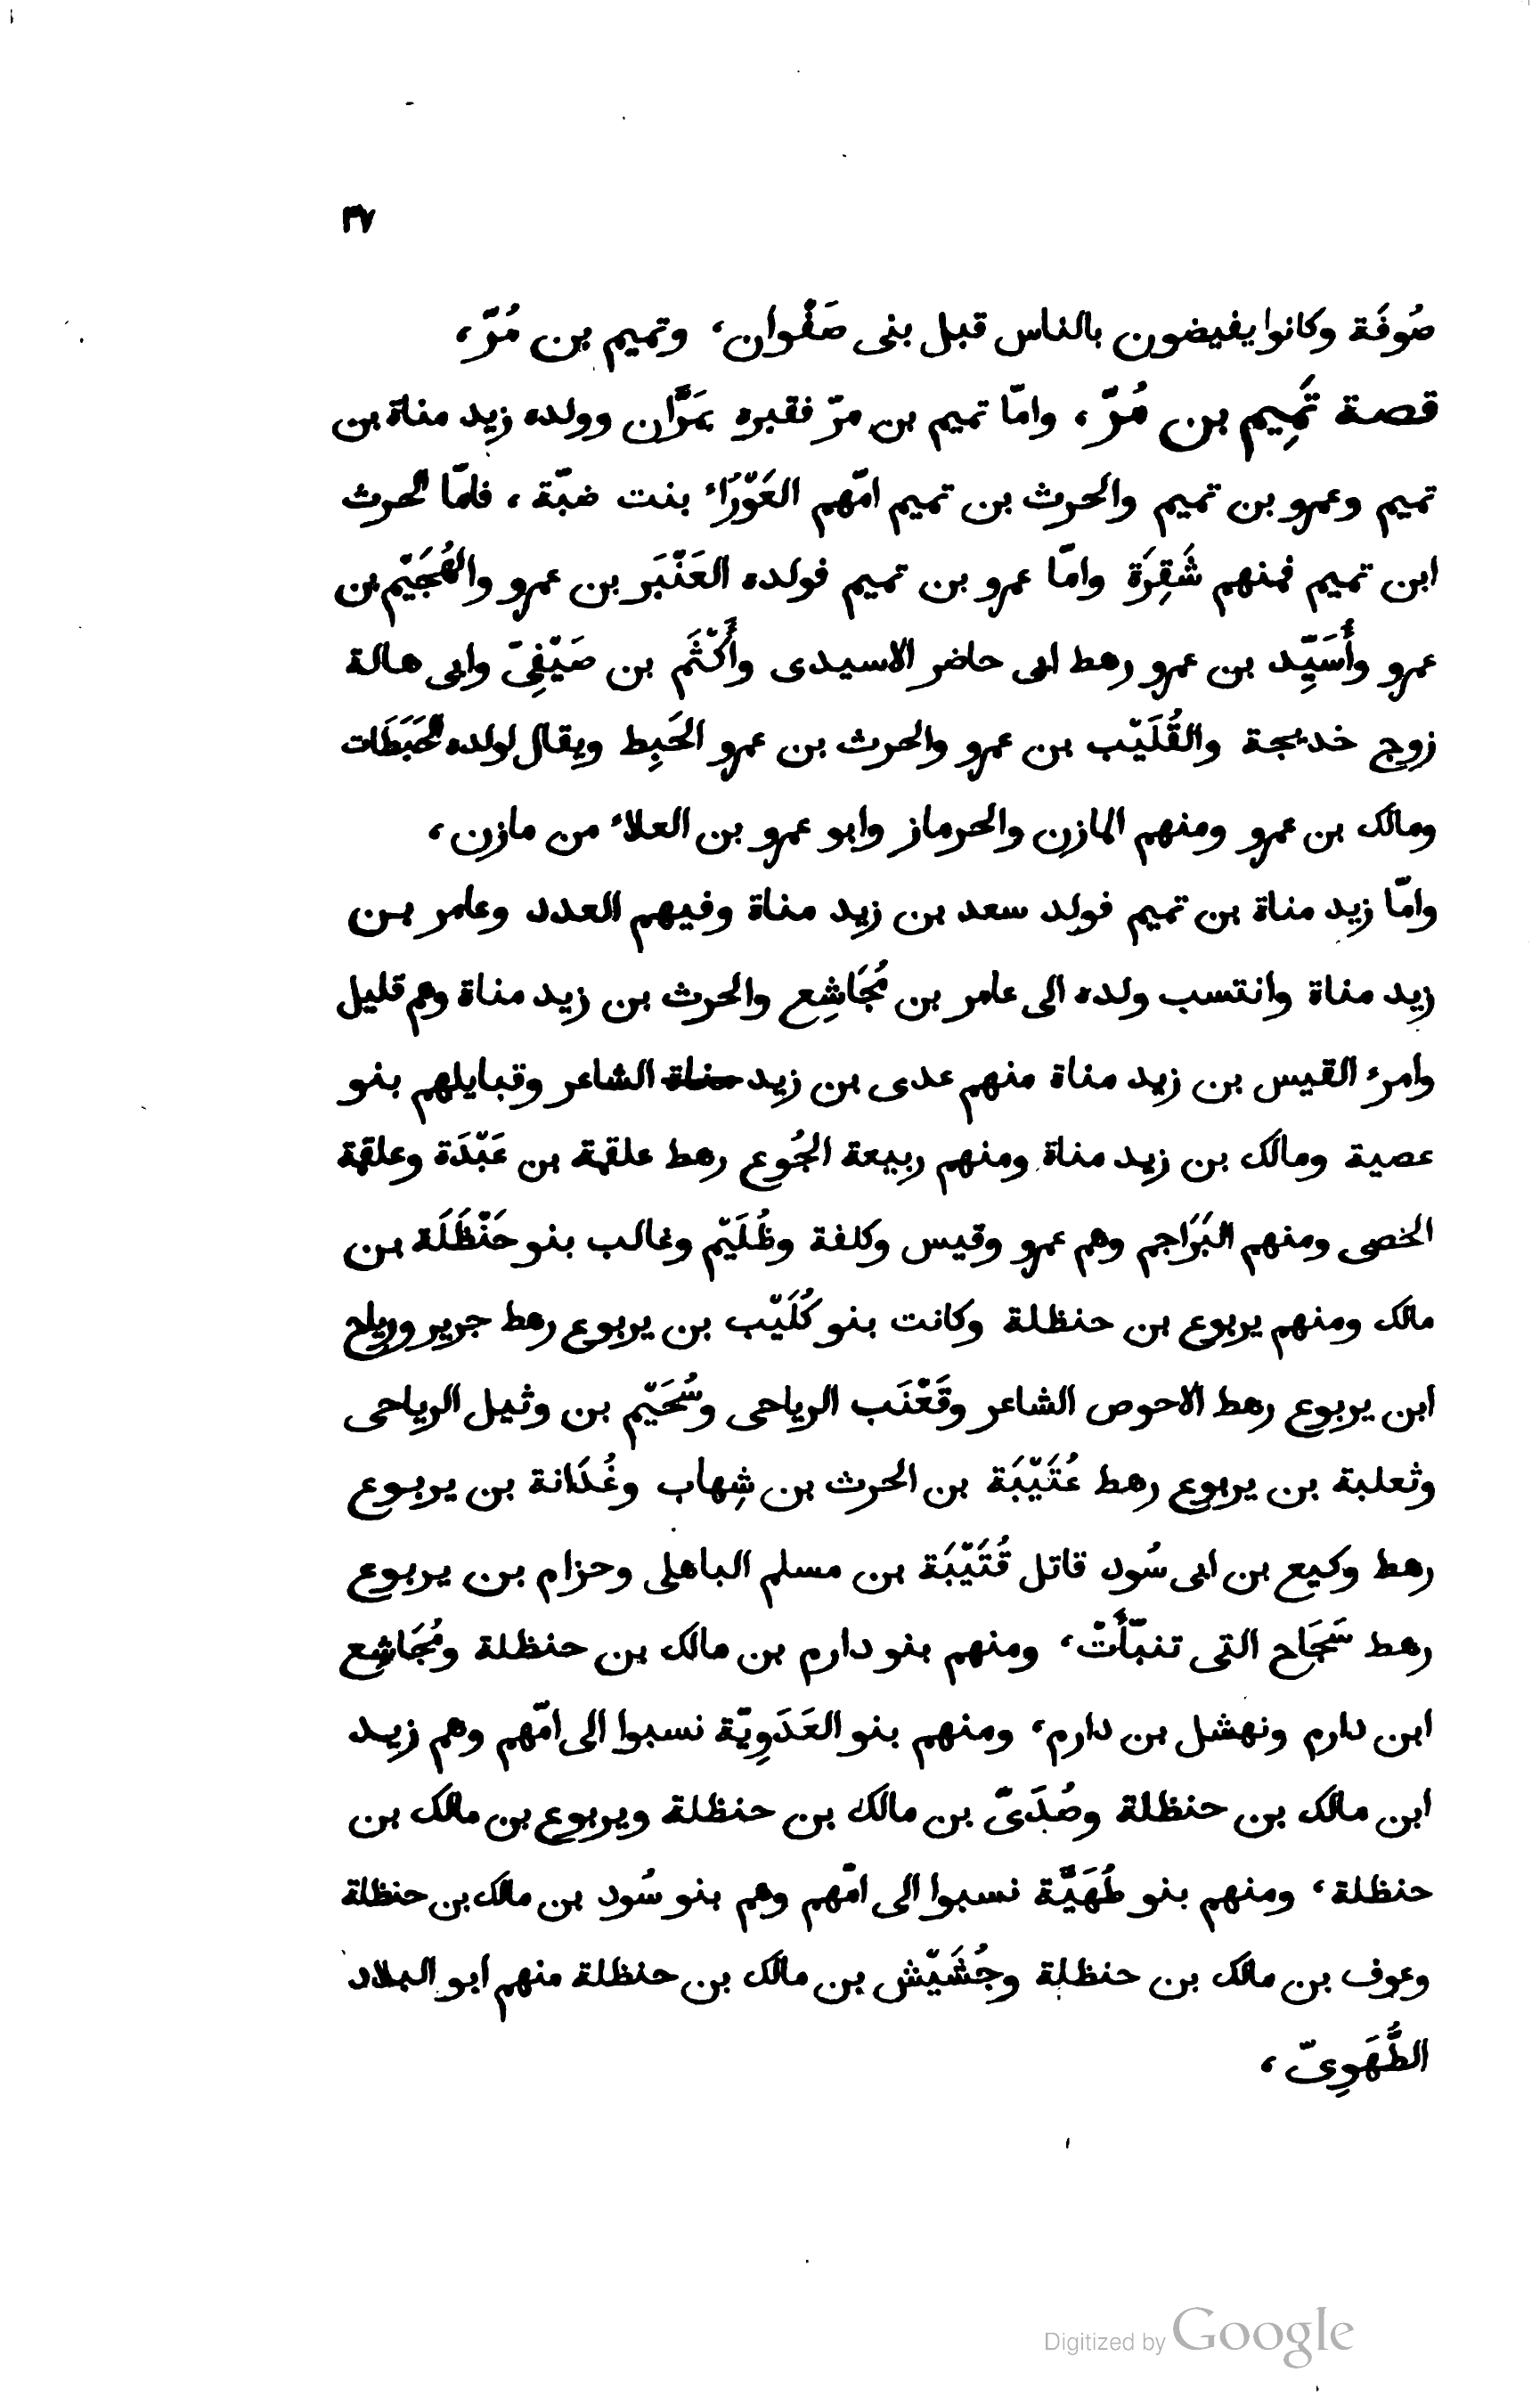 ٣٧
صُوفَة وكانوا يفيضون بالناس قبل بنى صَفْوان، وتميم بن مُرّ،
قصة تَمِيم بن مُرّ، وامّا تميم بن مرّ فقبره بمَرَّان وولده زيد مناة بن
تميم وعمرو بن تميم والحرث بن تميم امّهم العَوْرَاء بنت ضبّة، فامّا الحرث
ابن تميم فمنهم شَقِرَة وامّا عمرو بن تميم فولده العَنْبَر بن عمرو والهُجَيْم بن
عمرو وأُسَيِّد بن عمرو رهط ابى حاضر الاسيدى وأَكْثَم بن صَيْفِىّ وابى هالة
زوج خديجة والقُلَيْب بن عمرو والحرث بن عمرو الحَبِط ويقال لولده الحَبَطَات
ومالك بن عمرو ومنهم المازن والحرماز وابو عمرو بن العلاء من مازن،
وامّا زيد مناة بن تميم فولد سعد بن زيد مناة وفيهم العدد وعامر بن
زيد مناة وانتسب ولده الى عامر بن مُجَاشِع والحرث بن زيد مناة وهم قليل
وامرء القيس بن زيد مناة منهم عدى بن زيد مناة الشاعر وقبايلهم بنو
عصية ومالك بن زيد مناة ومنهم ربيعة الجُوع رهط علقمة بن عَبْدَة وعلقمة
الخصى ومنهم البَرَاجم وهم عمرو وقيس وكلفة وظُلَيْم وغالب بنو حَنْظَلَة بن
مالك ومنهم يربوع بن حنظلة وكانت بنو كُلَيْب بن يربوع رهط جرير ورياح
ابن يربوع رهط الاحوص الشاعر وقَعْنَب الرياحى وسُحَيْم بن وثيل الرياحى
وثعلبة بن يربوع رهط عُتَيْبَة بن الحرث بن شِهاب وغُدَانة بن يربوع
رهط وكيع بن ابى سُود قاتل قُتَيْبَة بن مسلم الباهلى وحزام بن يربوع
رهط سَجَاح التى تنبّأَتْ، ومنهم بنو دارم بن مالك بن حنظلة ومُجَاشِع
ابن دارم ونهشل بن دارم، ومنهم بنو العَدَوِيّة نسبوا الى امّهم وهم زيد
ابن مالك بن حنظلة وصُدَىّ بن مالك بن حنظلة ويربوع بن مالك بن
حنظلة، ومنهم بنو طُهَيَّة نسبوا الى امّهم وهم بنو سُود بن مالك بن حنظلة
وعوف بن مالك بن حنظلة وجُشَيْش بن مالك بن حنظلة منهم ابو البلاد
الطُّهَوِىّ،
Digitized by Google